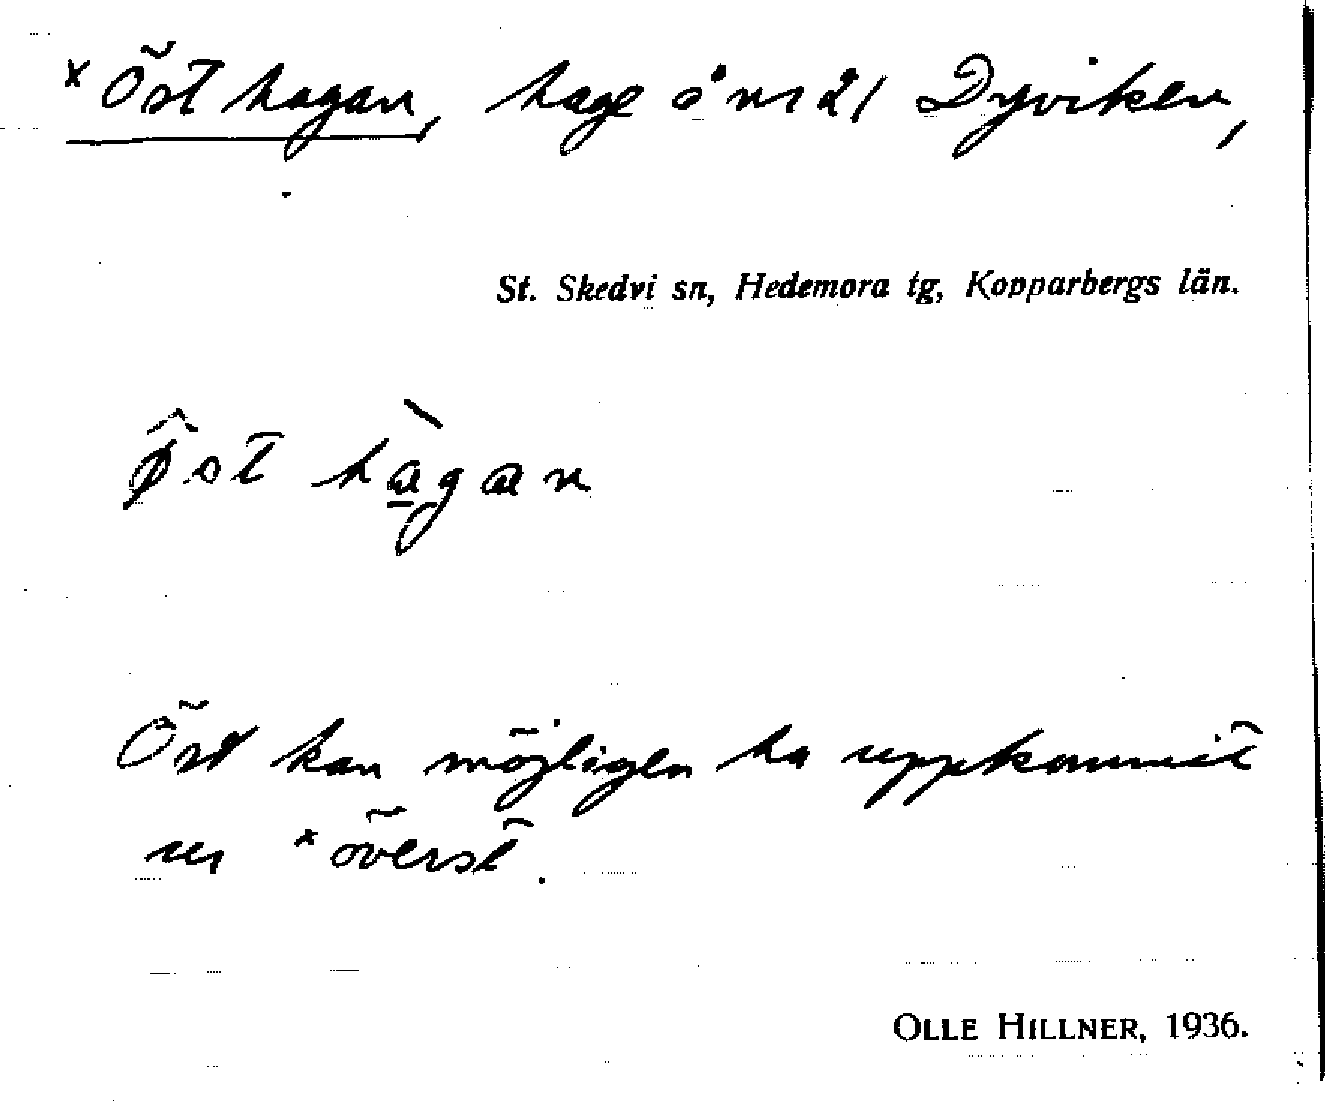 x Östhagan, hage å nr 21 Dyviken,
St. Skedvi sn, Hedemora tg, Kopparbergs län.
Øst hàgan
Öst kan möjligen ha uppkommit
ur x överst.
OLLE HILLNER, 1936.